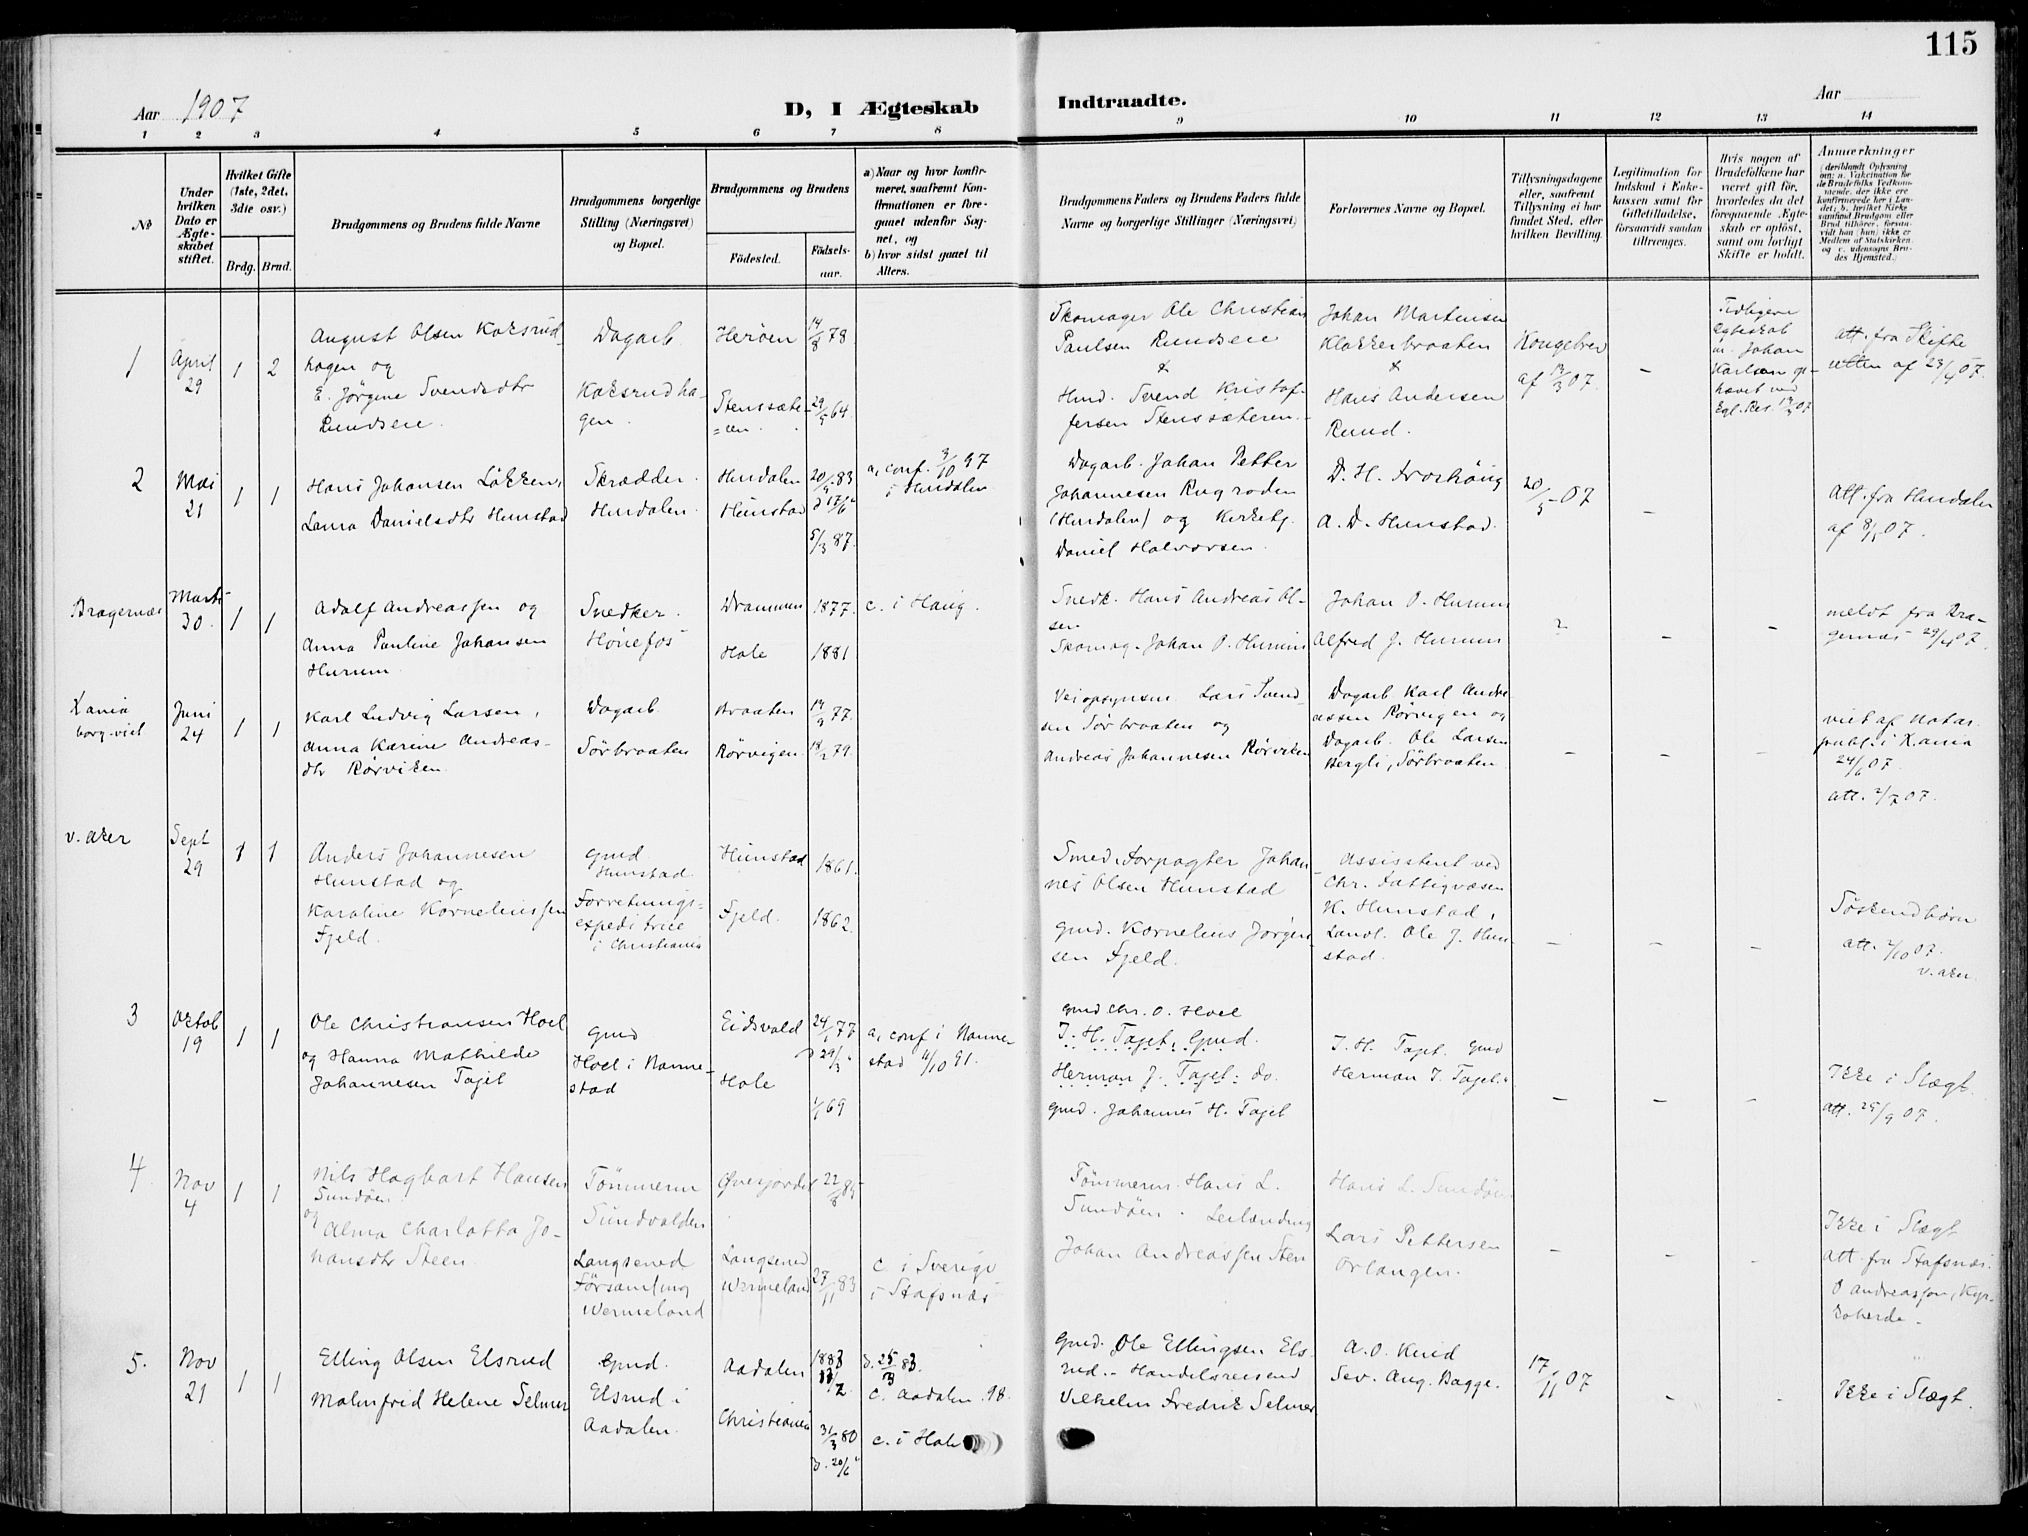 115
Aar 1907
D, I Ægteskab
Indtraadte.
Aar
1 2 3 4 5 6 7 8 9 10 11 12 13 14
No
Under hvilken Dato er Ægteskabet stiftet.
Hvilket Gifte (1ste, 2det, 3die osv.)
Brdg. Brud.
Brudgommens og Brudens fulde Navne
Brudgommens borgerlige Stilling (Næringsvei) og Bopæl.
Brudgommens og Brudens
Födested.
Födsels-aar.
a) Naar og hvor konfirmeret, saafremt Konfirmationen er foregaaet udenfor Sognet, og
b) hvor sidst gaaet til Alters.
Brudgommens Faders og Brudens Faders fulde Navne og borgerlige Stillinger (Næringsvei)
Forlovernes Navne og Bopæl.
Tillysningsdagene eller, saafremt Tillysning ei har fundet Sted, efter hvilken Bevilling.
Legitimation for Indskud i Enkekassen samt for Giftetilladelse, forsaavidt saadan tiltrænges.
Hvis nogen af Brudefolkene har været gift før, hvorledes da det foregaaende Ægteskab er opløst, samt om lovligt Skifte er holdt.
Anmærkninger (deriblandt Oplysning om: a. Vaksination for de Brudefolks Vedkommende, der ikke ere konfirmerede her i Landet; b. hvilket Kirkesamfund Brudgom eller Brud tilhører, forsaavidt han (hun) ikke er Medlem af Statskirken og c. udensogns Brudes Hjemsted.)
1
April 29
1 2
August Olsen Koksrudhagen og
E. Jörgine Svendsdtr Rundsen.
Dagarb.
Koksrudhagen.
Herøen
14/8 78
29/5 64
Skomager Ole Christian Paulsen Rundseie
&
Hmd. Svend Kristoffersen Stenssæteren.
Johan Martinsen Klokkerbraaten
&
Hans Andersen Rund.
Kongebrev af 13/3 07.
-
Tidligere Ægteskab m. Johan Karlsen ophævet ved
att. fra Skifteretten af 23/4 07.
2
Mai 21
1 1
Hans Johansen Løkken,
Laura Danielsdtr Hunstad
Skrædder.
Hurdalen.
Hurdalen
Hunstad
5/3 87.
a, conf. 3/10 97 i Hurdalen
Dagarb. Johan Petter Johannesen Rugroden (Hurdalen) og Kirketj. Daniel Halvorsen.
D. H. Froshöug
A. D. Hunstad.
20/5 - 07
-
Att. fra Hurdalen af 8/5 07.
Bragernæs
Marts 30.
1 1
Adolf Andreassen og
Anna Pauline Johansen Hurum
Snedker.
Hønefos
Drammen
Hole
1877.
1881
c. i Haug.
Snedk. Hans Andreas Olsen
Skomag. Johan O. Hurum
Johan O. Hurum
Alfred J. Hurum
-
-
meldt fra Bragernæs 29/4 07.
X.ania borg. viet
Juni 24
1 1
Karl Ludvig Larsen,
Anna Karine Andreasdtr Rørviken.
Dagarb.
Sörbraaten
Braaten
Rörvigen.
14/9 77.
18/2 79.
Veiopsynsm. Lars Svendsen Sørbraaten og
Andreas Johannesen Rørviken
Dagarb Karl Andreassen Rörvigen og
Dagarb. Ole Larsen Bergli, Sörbraaten
- - -
viet af Notar. publ. i X.ania 24/6 07.
att. 2/7 07.
v. aker
Sept 29
1 1
Anders Johannesen Hunstad og
Karoline Korneliussen Fjeld.
Gmd. Hunstad.
Forretningsexpeditrice i Christiania
Hunstad
Fjeld.
1861.
1862.
Smed, Forpagter Johannes Olsen Hunstad
Gmd. Kornelius Jørgensen Fjeld.
Assistent ved Chr. Fattigvæsen H. Hunstad,
Landl. Ole J. Hunstad.
- - -
Söskendbörn
att. 2/10 07.
v. aker
3
Oktob 19
1 1
Ole Christiansen Hoel
og Hanna Mathilde Johannesen Fajet
Gmd
Hoel i Nannestad
Eidsvold
Hole
24/1 77
a, conf. i Nannestad 4/10 91.
Gmd Chr. O. Hoel
J. H. Fajet, Gmd.
Herman J. Fajet. do.
Gmd. Johannes H. Fajet
J. H. Fajet. Gmd
Herman J. Fajet. "
- - -
Ikke i Slægt.
att. 25/9 07.
4
Nov 4
1 1
Nils Hagbart Hansen Sundöen
og Alma Charlotta Johansdtr Steen.
Tömmerm
Sundvolden
Langserud Församling Wermeland
Langserud Wermeland
27/11 83
c. i Sverige i Stafsnæs
Tömmerm. Hans L. Sundöen.
Johan Andreassen Sten
Hans L. Sundöen
Lars Pettersen Orlangen.
- - -
Ikke i Slægt
att. fra Stafsnæs.
O Andreasson, Kyrkoherde.
5.
Nov 21
1 1
Elling Olsen Elsrud
Malmfrid Helene Selmer
Gmd.
Elsrud i Aadalen.
Aadalen
Christiania
1883
31/3 80
d. 20/6
d. 25/3 83.
c. Aadalen. 98.
c. i Hole
Gmd. Ole Ellingsen Elsrud. - Handelsreisend Vilhelm Fredrik Selmer
A. O. Knid
Sev. Aug. Bagge.
17/11 07
- -
Ikke i Slægt.